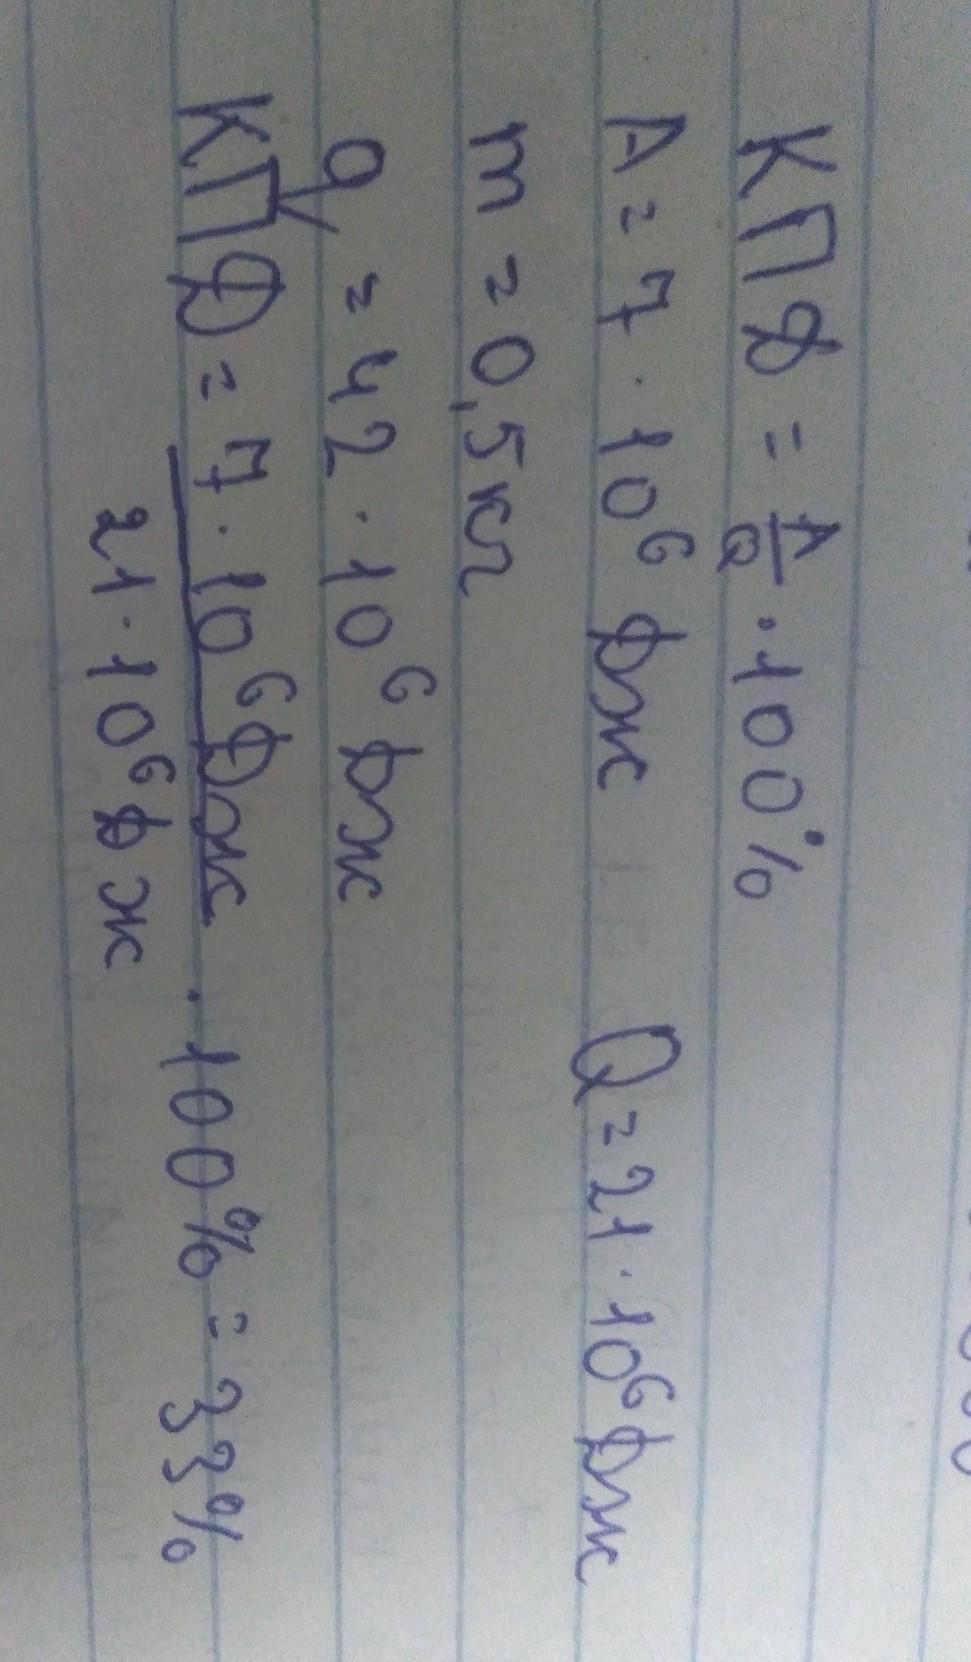 КПД = A/Q · 100%
A = 7 · 10⁶ Дж Q = 21 · 10⁶ Дж
m = 0,5 кг
q = 42 · 10⁶ Дж
КПД = 7 · 10⁶ Дж / 21 · 10⁶ Дж · 100% = 33%